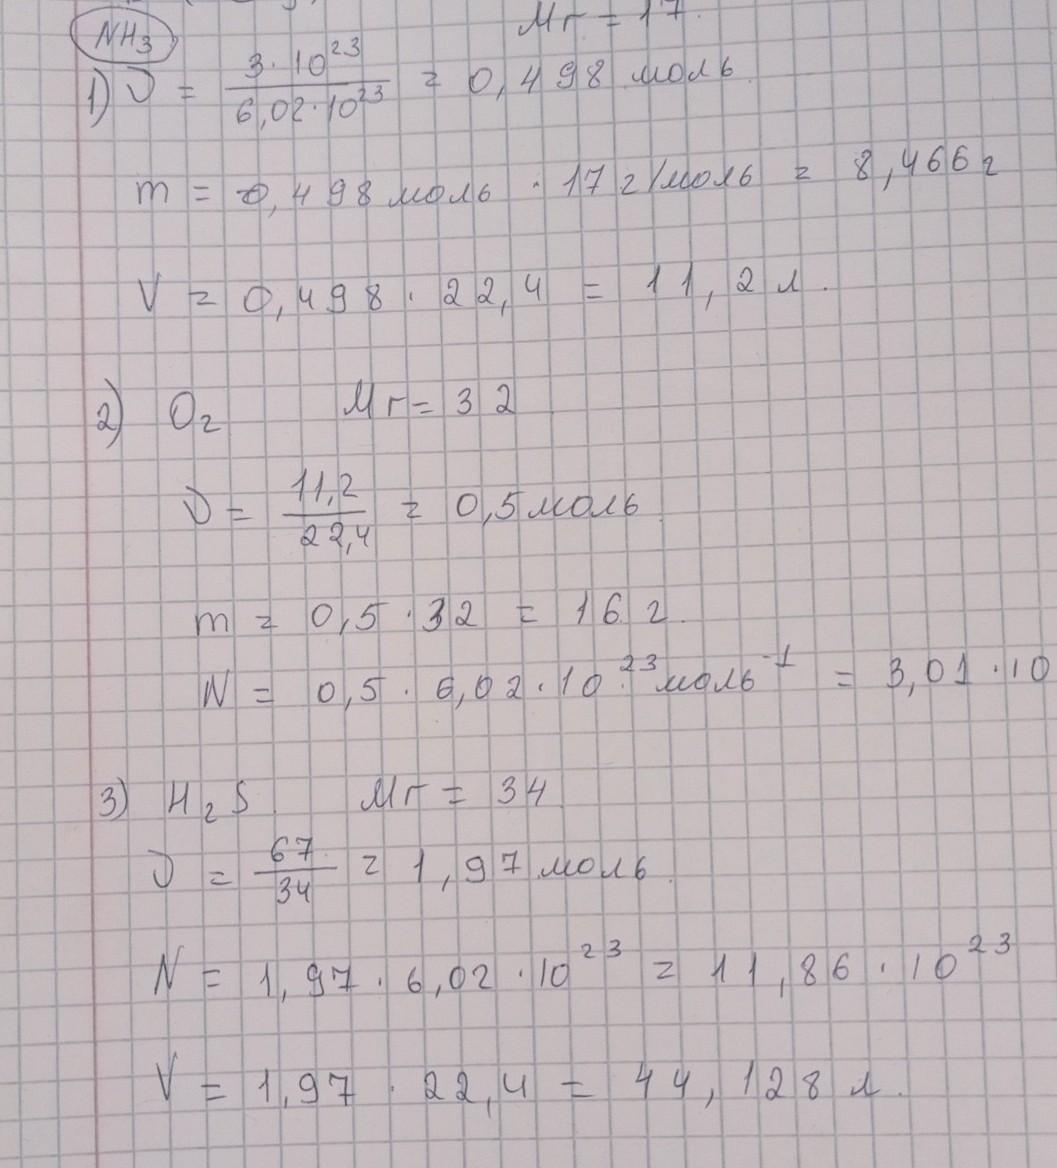 NH₃ Mr = 17
1) ν = 3 · 10²³ / 6,02 · 10²³ = 0,498 моль.
m = 0,498 моль · 17 г/моль = 8,466 г
V = 0,498 · 22,4 = 11,2 л.
2) O₂ Mr = 32
ν = 11,2 / 22,4 = 0,5 моль
m = 0,5 · 32 = 16 г.
N = 0,5 · 6,02 · 10²³ моль⁻¹ = 3,01 · 10
3) H₂S. Mr = 34
ν = 67 / 34 = 1,97 моль.
N = 1,97 · 6,02 · 10²³ = 11,86 · 10²³
V = 1,97 · 22,4 = 44,128 л.